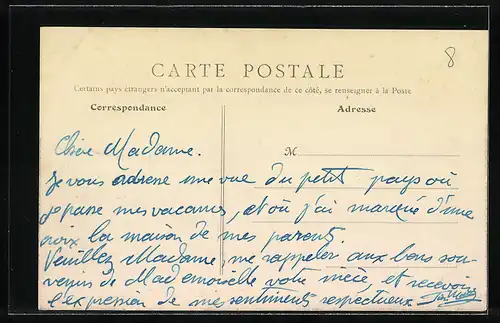 8
CARTE POSTALE
Certains pays étrangers n'acceptant par la correspondance de ce côté, se renseigner à la Poste
Correspondance
Adresse
M
Chère Madame.
Je vous adresse une vue du petit pays où
je passe mes vacances, et où j'ai marqué d'une
croix la maison de mes parents.
Veuillez Madame, me rappeler aux bons sou-
venirs de Mademoiselle votre nièce, et recevoir
l'expression de mes sentiments respectueux.